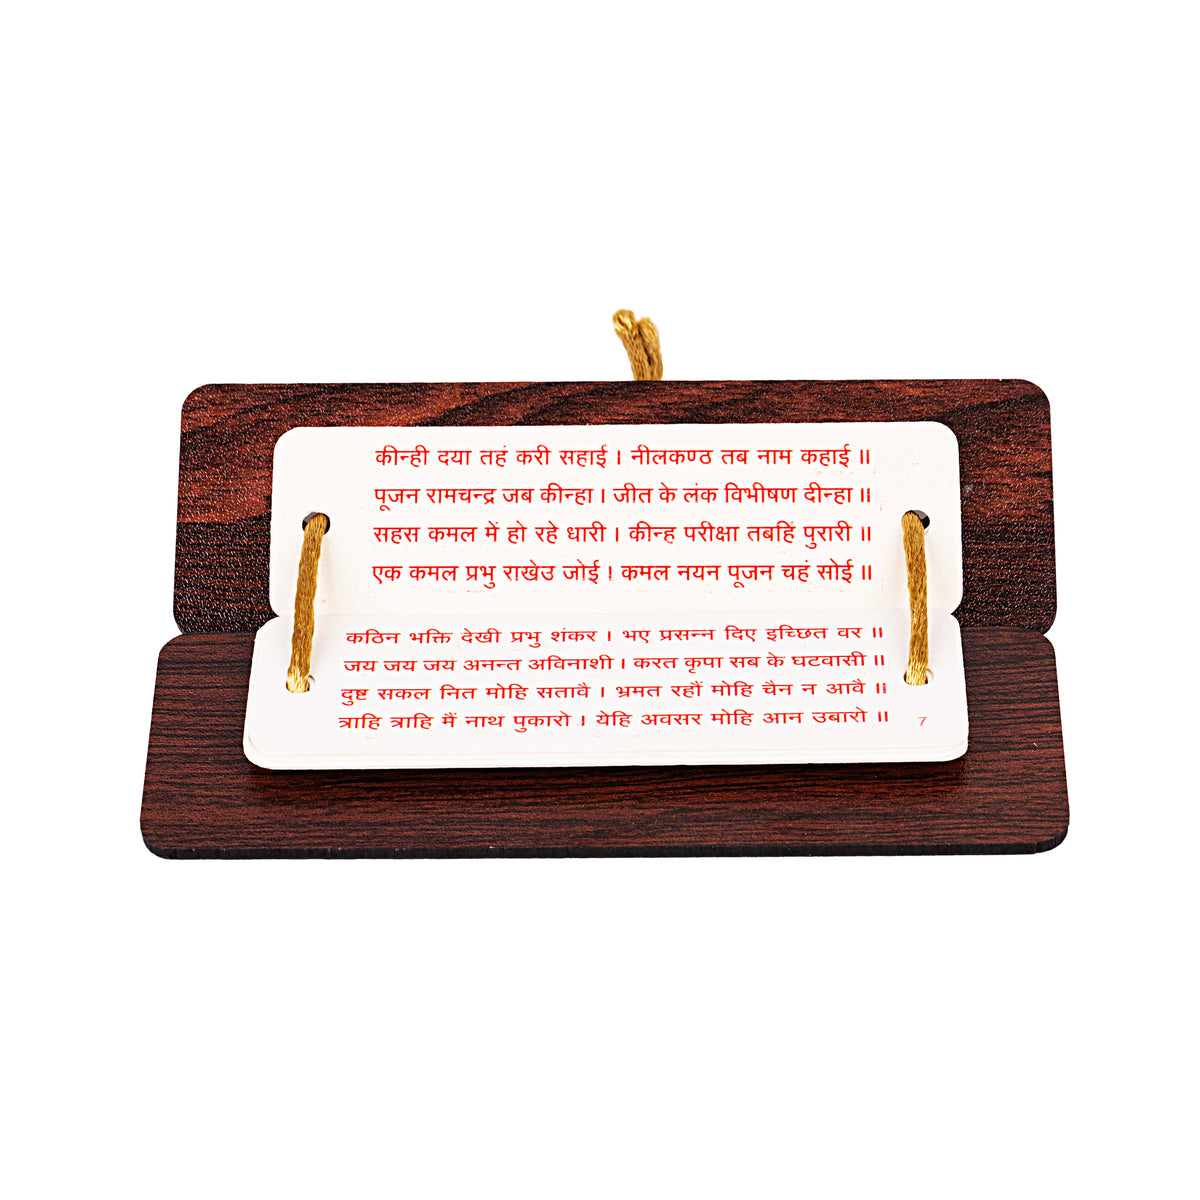 कीन्ही दया तहं करी सहाई । नीलकण्ठ तब नाम कहाई ॥
पूजन रामचन्द्र जब कीन्हा । जीत के लंक विभीषण दीन्हा ॥
सहस कमल में हो रहे धारी । कीन्ह परीक्षा तबहिं पुरारी ॥
एक कमल प्रभु राखेउ जोई । कमल नयन पूजन चहं सोई ॥
कठिन भक्ति देखी प्रभु शंकर । भए प्रसन्न दिए इच्छित वर ॥
जय जय जय अनन्त अविनाशी । करत कृपा सब के घटवासी ॥
दुष्ट सकल नित मोहि सतावै । भ्रमत रहौं मोहि चैन न आवै ॥
त्राहि त्राहि मैं नाथ पुकारो । येहि अवसर मोहि आन उबारो ॥
7